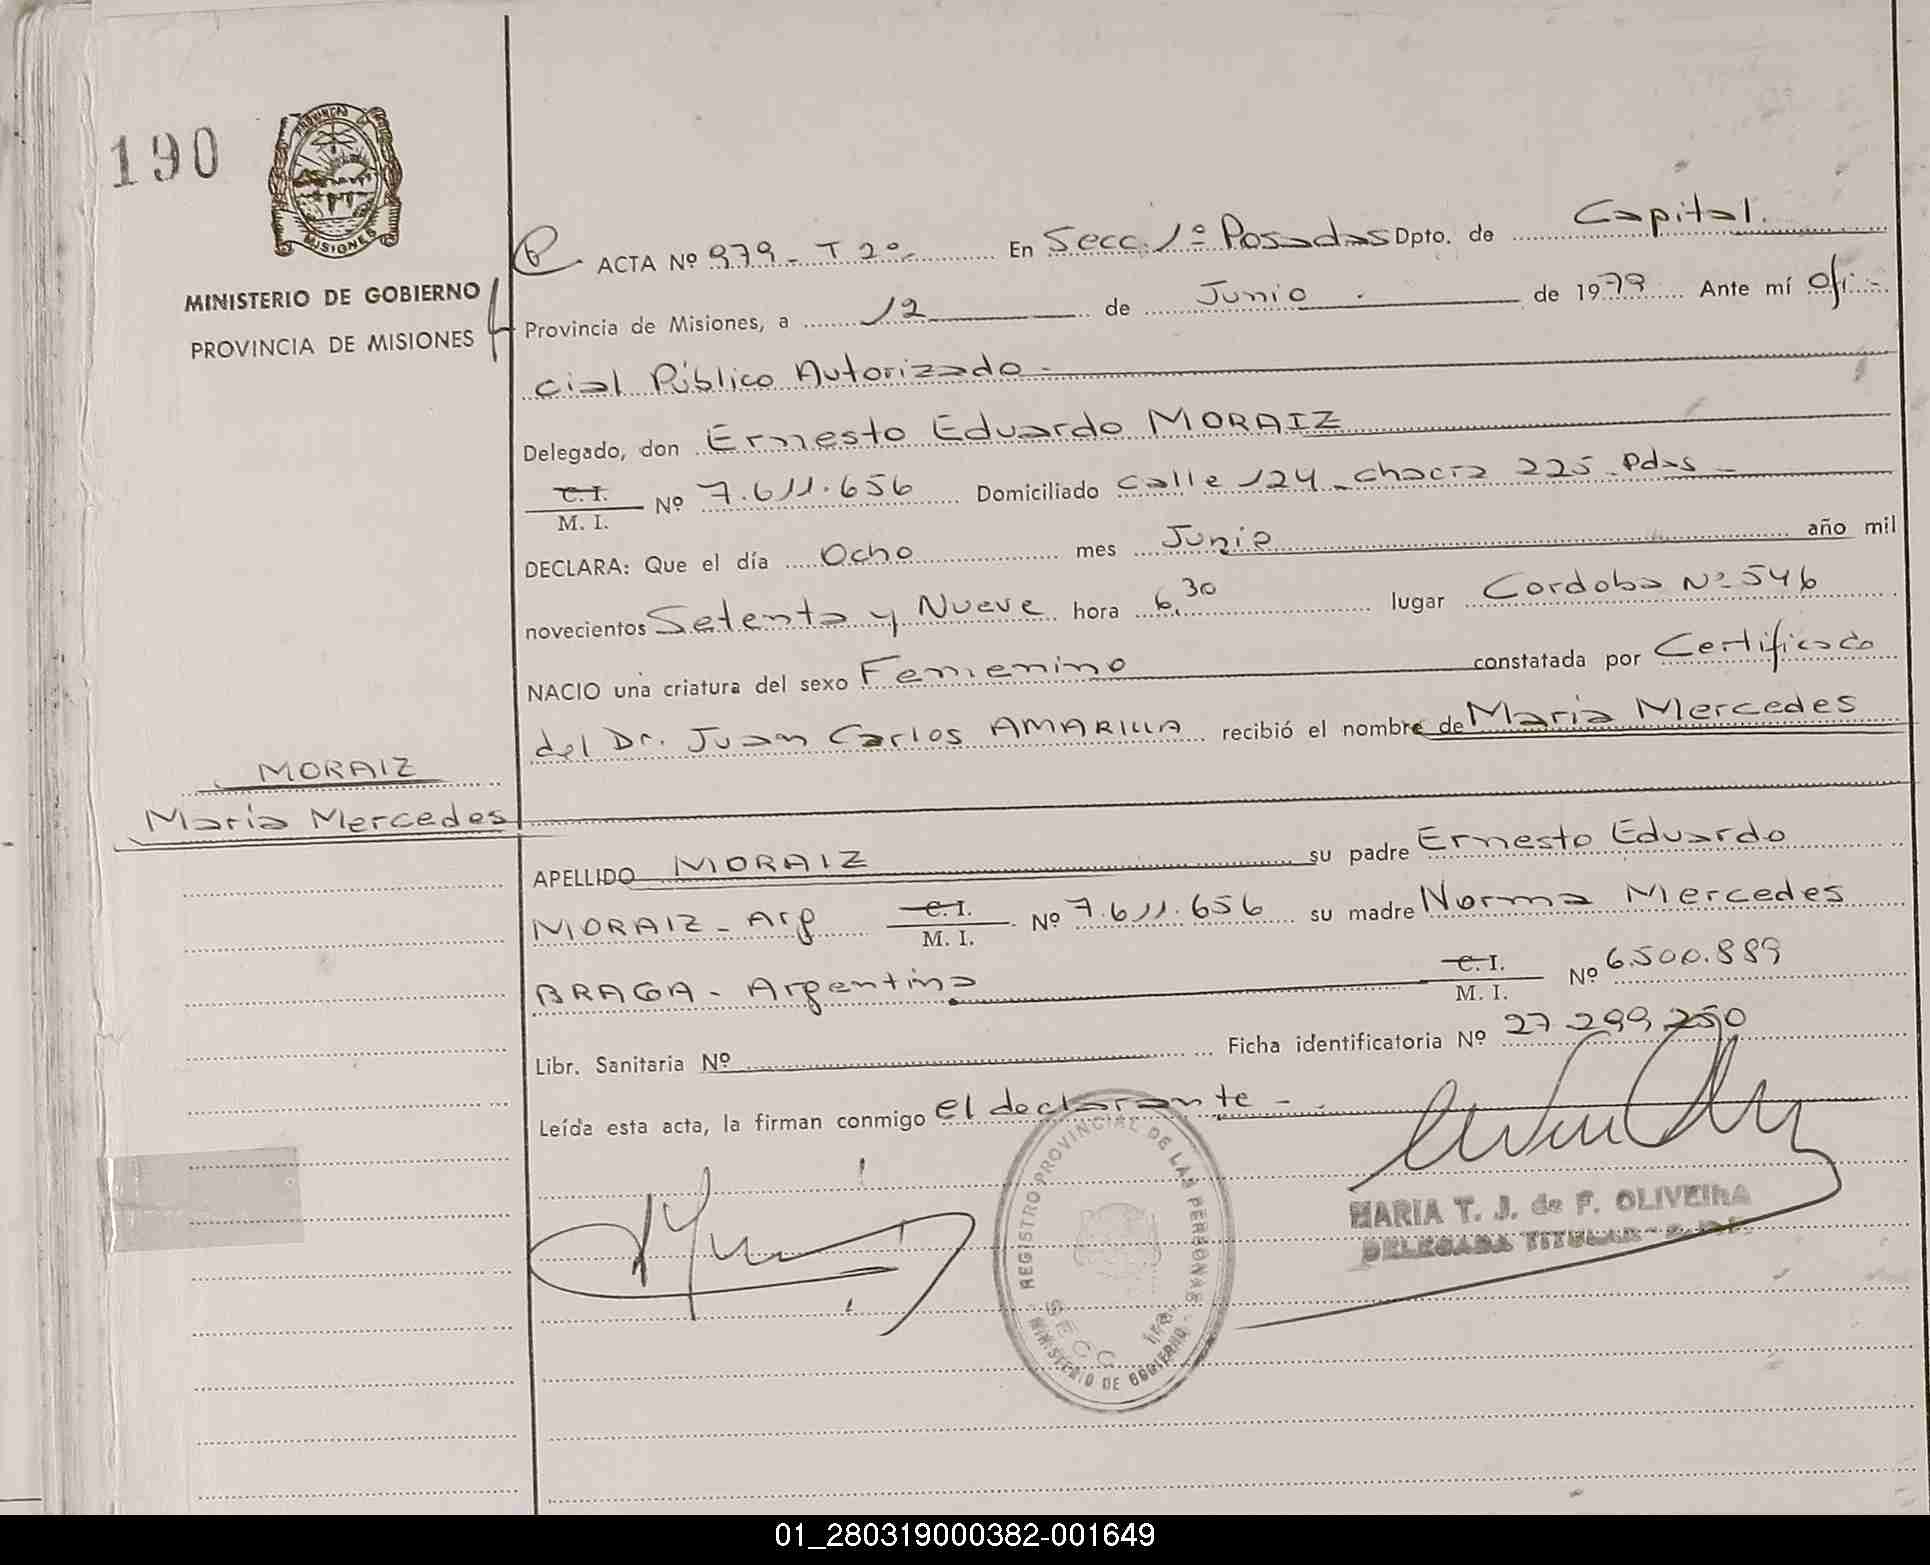 190
PROVINCIA
MISIONES
MINISTERIO DE GOBIERNO
PROVINCIA DE MISIONES
ACTA Nº 979 - T 2º - En Secc. 1º Posadas Dpto. de Capital.
Provincia de Misiones, a 12 de Junio de 1979 Ante mí Ofi-
cial Público Autorizado -
Delegado, don Ernesto Eduardo MORAIZ
C. I.
M. I. Nº 7.611.656 Domiciliado calle 124 - chacra 225 - Pdas -
DECLARA: Que el día Ocho mes Junio año mil
novecientos Setenta y Nueve hora 6,30 lugar Cordoba Nº 546
NACIO una criatura del sexo Femenino constatada por Certificado
del Dr. Juan Carlos AMARILLA recibió el nombre de Maria Mercedes
MORAIZ
Maria Mercedes
APELLIDO MORAIZ su padre Ernesto Eduardo
MORAIZ - Arg C. I. M. I. Nº 7.611.656 su madre Norma Mercedes
BRAGA - Argentina C. I. M. I. Nº 6.500.889
Libr. Sanitaria Nº Ficha identificatoria Nº 27.299.250
Leída esta acta, la firman conmigo el declarante - -
REGISTRO PROVINCIAL DE LAS PERSONAS
SECC 1ra.
MINISTERIO DE GOBIERNO
MARIA T. J. de F. OLIVEIRA
DELEGADA TITULAR
01_280319000382-001649